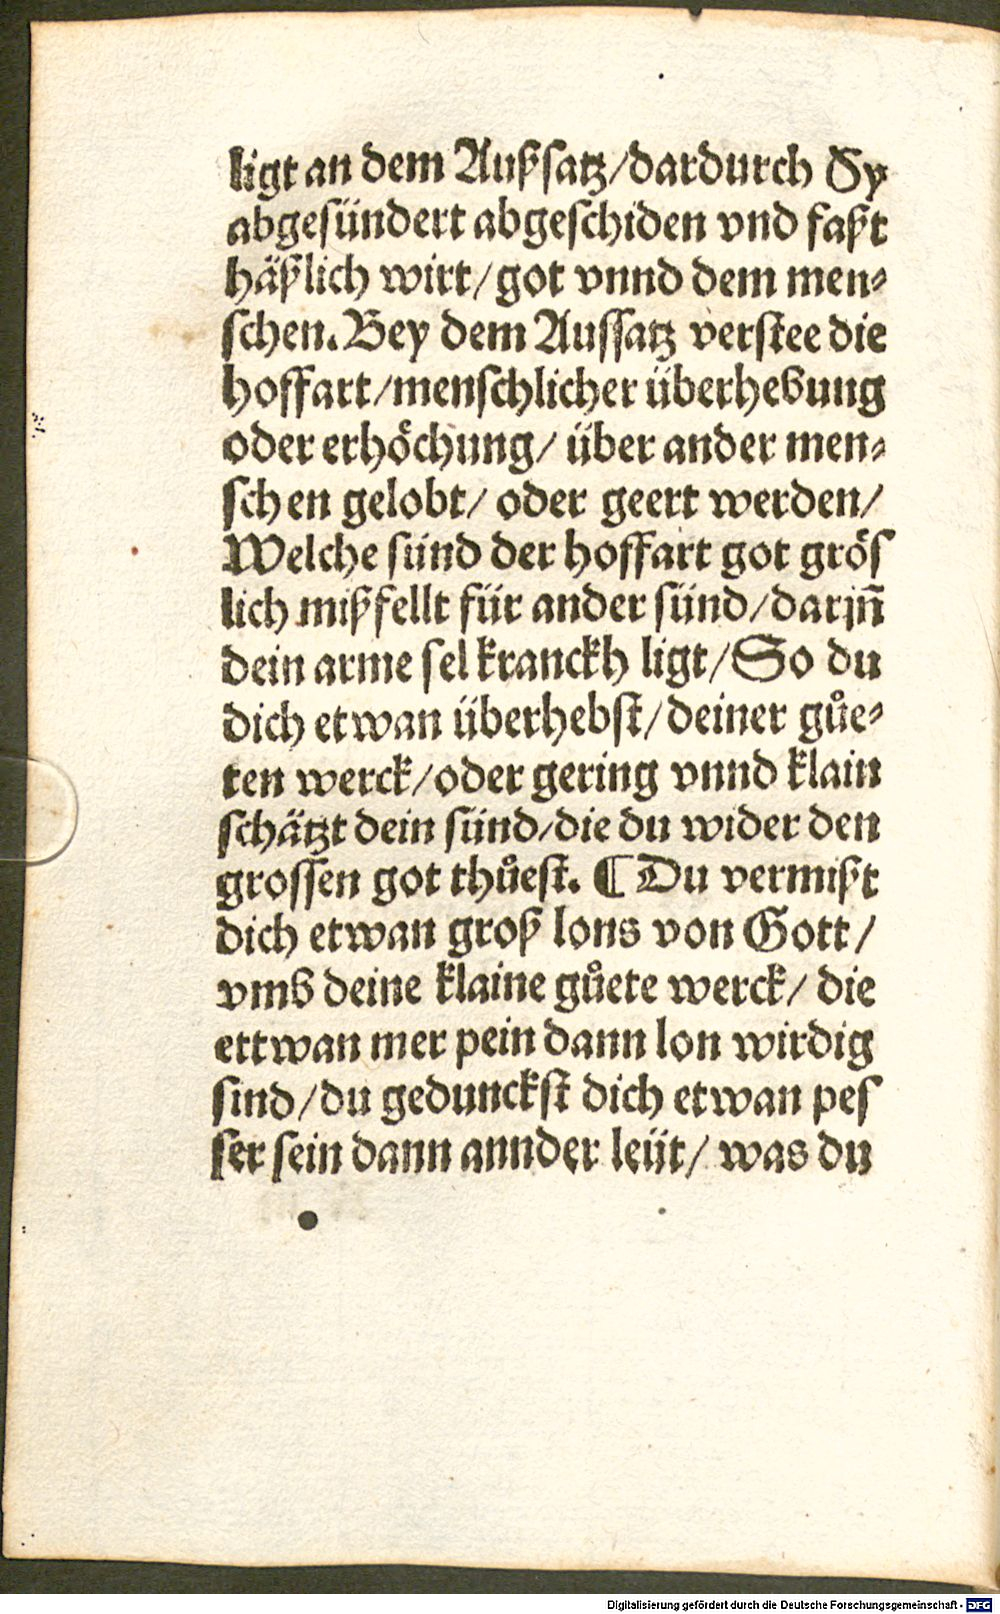 ligt an dem Außsatz/dardurch Sy
abgesündert abgeschiden vnd faßt
häßlich wirt/got vnnd dem men⸗
schen. Bey dem Aussatz verstee die
hoffart/menschlicher überhebung
oder erhöchung/ über ander men⸗
schen gelobt/ oder geert werden/
Welche sünd der hoffart got grös
lich mißfellt für ander sünd/darjn̄
dein arme sel kranckh ligt/So du
dich etwan überhebst/deiner gůe⸗
ten werck/oder gering vnnd klain
schätzt dein sünd/die du wider den
grossen got thůest. ¶ Du vermißt
dich etwan groß lons von Gott/
vmb deine klaine gůete werck/ die
ettwan mer pein dann lon wirdig
sind/du gedunckst dich etwan pes
ser sein dann annder leüt/ was du
Digitalisierung gefördert durch die Deutsche Forschungsgemeinschaft - DFG